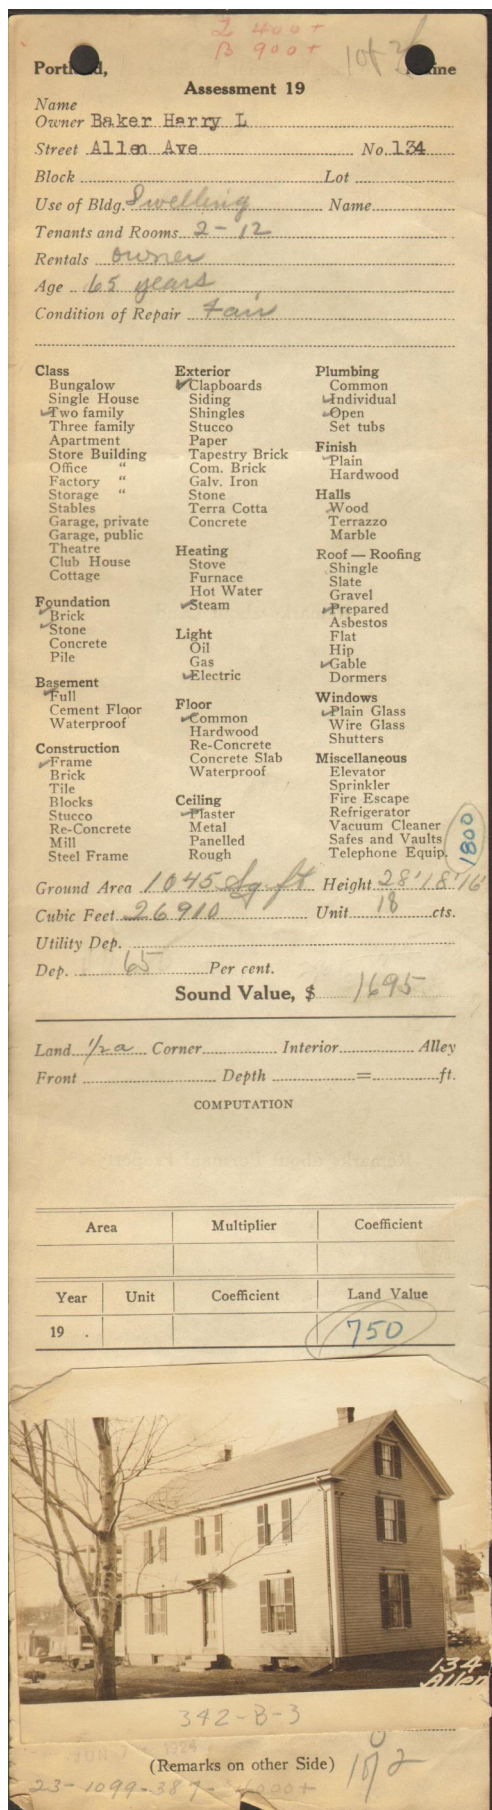 L 400+
B 900+
1 of 2
Portland, Maine
Assessment 19
Name
Owner Baker Harry L
Street Allen Ave No. 134
Block Lot
Use of Bldg. Dwelling Name
Tenants and Rooms 2 - 12
Rentals owner
Age 65 years
Condition of Repair Fair
Class
Bungalow
Single House
Two family
Three family
Apartment
Store Building
Office "
Factory "
Storage "
Stables
Garage, private
Garage, public
Theatre
Club House
Cottage
Foundation
Brick
Stone
Concrete
Pile
Basement
Full
Cement Floor
Waterproof
Construction
Frame
Brick
Tile
Blocks
Stucco
Re-Concrete
Mill
Steel Frame
Exterior
Clapboards
Siding
Shingles
Stucco
Paper
Tapestry Brick
Com. Brick
Galv. Iron
Stone
Terra Cotta
Concrete
Heating
Stove
Furnace
Hot Water
Steam
Light
Oil
Gas
Electric
Floor
Common
Hardwood
Re-Concrete
Concrete Slab
Waterproof
Ceiling
Plaster
Metal
Panelled
Rough
Plumbing
Common
Individual
Open
Set tubs
Finish
Plain
Hardwood
Halls
Wood
Terrazzo
Marble
Roof — Roofing
Shingle
Slate
Gravel
Prepared
Asbestos
Flat
Hip
Gable
Dormers
Windows
Plain Glass
Wire Glass
Shutters
Miscellaneous
Elevator
Sprinkler
Fire Escape
Refrigerator
Vacuum Cleaner
Safes and Vaults
Telephone Equip.
1800
Ground Area 1045 Sq ft Height 28' 18' 16'
Cubic Feet 26910 Unit 18 cts.
Utility Dep.
Dep. 65 Per cent.
Sound Value, $ 1695
Land 1/2 a Corner Interior Alley
Front Depth = ft.
COMPUTATION
Area Multiplier Coefficient
Year Unit Coefficient Land Value
19 . 750
134
Allen
342-B-3
(Remarks on other Side)